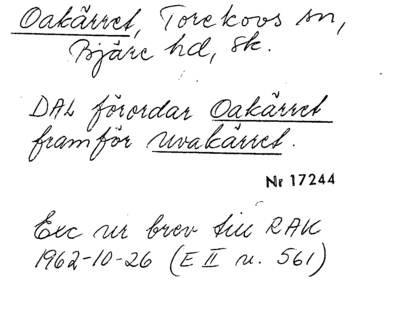 Oakärret, Torekovs sn,
Bjäre hd, Sk.
DAL förordar Oakärret
framför Uvakärret.
Nr 17244
Exc ur brev till RAK
1962-10-26 (E II n. 561)